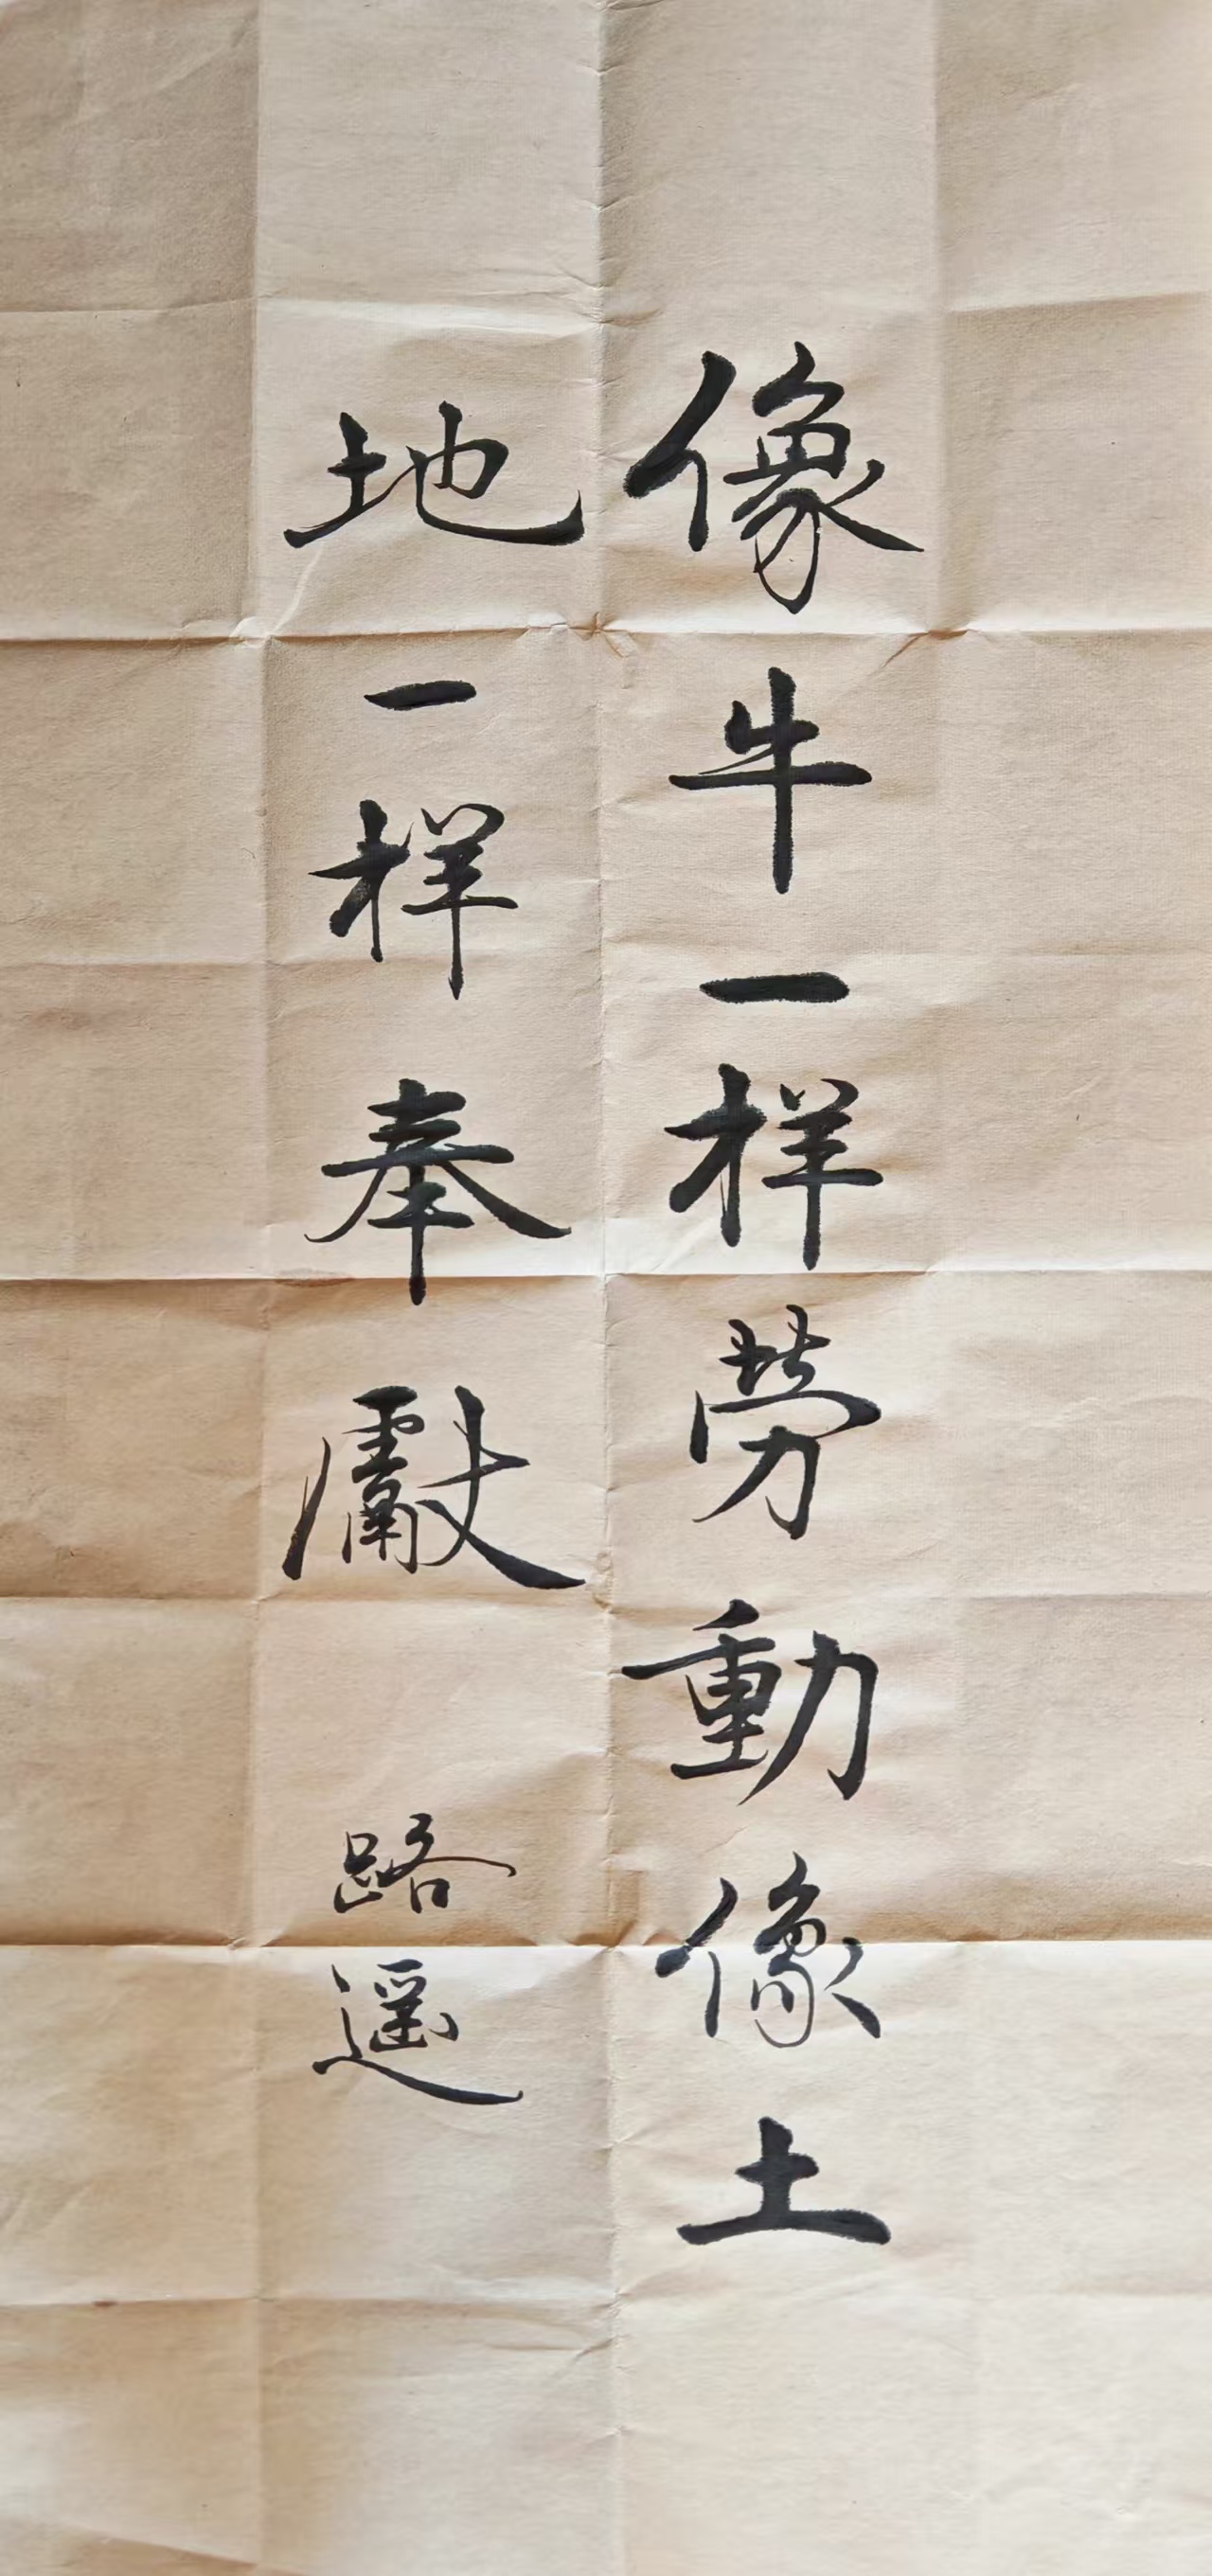 像牛一样劳動像土
地一样奉獻
路遥